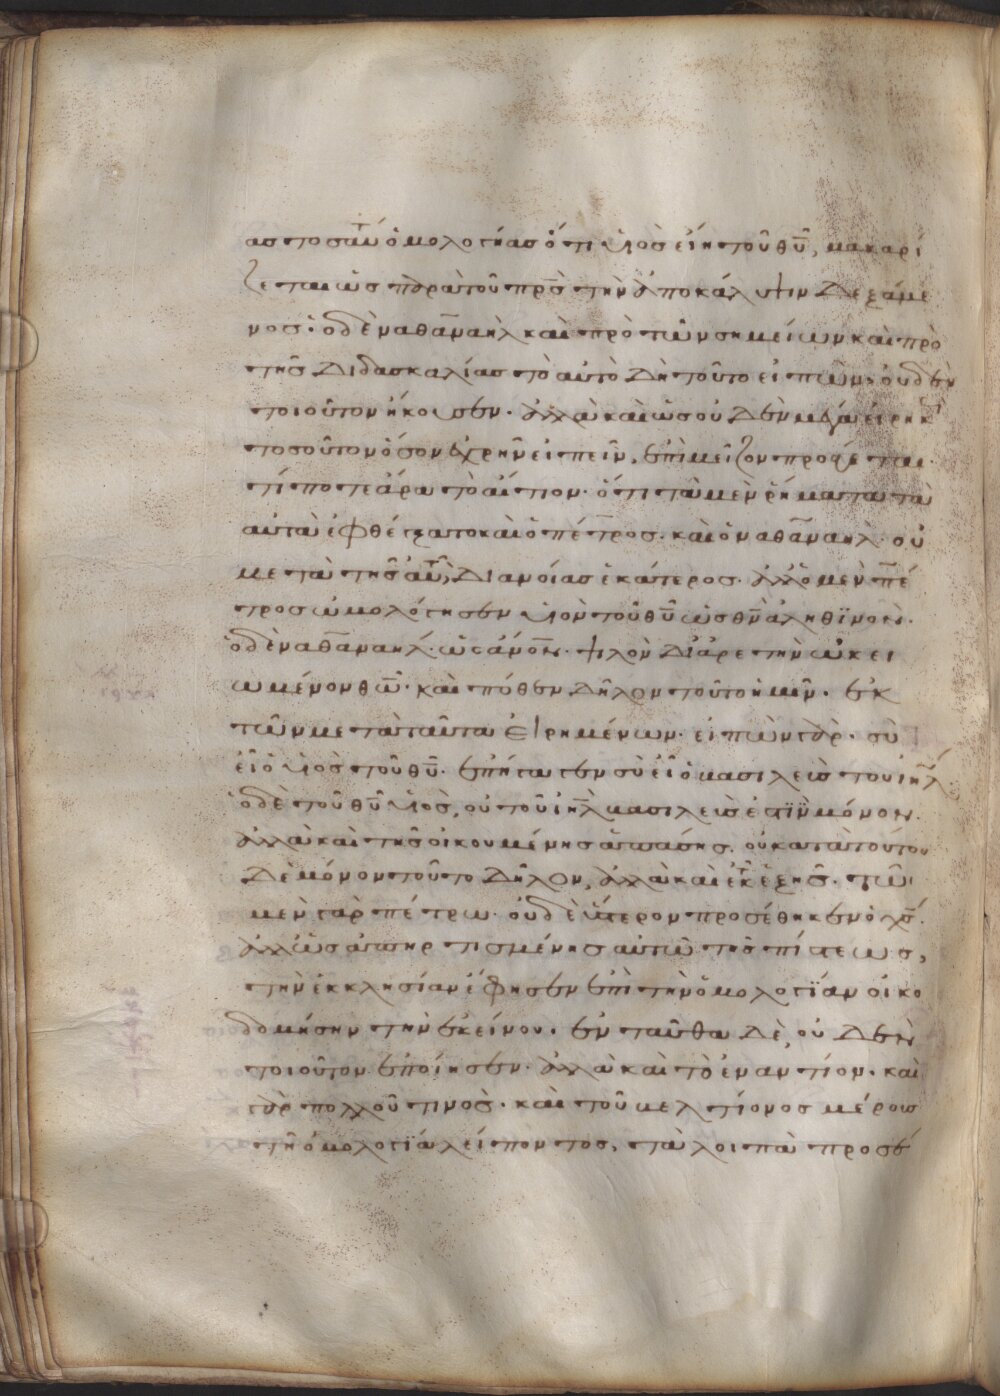 ας τοσαῦ ὁμολογήσας ὅτι υἱὸς εἶ τοῦ θῦ, μακαρί
ζεται ὡς πρὰ τοῦ πρς τὴν ἀποκάλυψιν δεξάμε
νος· ὁ δὲ ναθαναὴλ καὶ πρὸ τῶν σημείων καὶ πρὸ
τῆς διδασκαλίας τὸ αὐτὸ δὴ τοῦτο εἰπὼν, οὐδὲν
τοιοῦτον ἤκουσεν. ἀλλὰ καὶ ὡς οὐδὲν μέγα εἰρηκὼς
τοσοῦτον ὅσον ἐχρῆν εἰπεῖν, ἐπὶ μεῖζον προάγεται.
τί ποτε ἄρα τὸ αἴτιον· ὅτι τὰ μὲν ῥήματα τὰ
αὐτὰ ἐφθέγξατο καὶ ὁ πέτρος. καὶ ὁ ναθαναὴλ· οὐ
μετὰ τῆς αὐτῆς διανοίας ἑκάτερος. ἀλλ ὁ μὲν πέ
τρος ὡμολόγησεν υἱὸν τοῦ θῦ ὡς θν ἀληθϊνον.
ὁ δὲ ναθαναήλ. ὡς ἀνον. ψιλὸν δι ἀρετὴν ὠκει
ωμένον θῶ· καὶ πόθεν δῆλον τοῦτο ἡμῖν. ἐκ
τῶν μετὰ ταῦτα εἰρημένων. εἰπὼν γὰρ. σὺ
εἶ ὁ υἱὸς τοῦ θῦ. ἐπήγαγεν σὺ εἶ ὁ βασιλεὺς τοῦ ιηλ
ὁ δὲ τοῦ θῦ υἱὸς, οὐ τοῦ ιηλ βασιλεὺς ἐστϊν μόνον.
ἀλλὰ καὶ τῆς οἰκουμένης ἁπάσης. οὐ κατὰ τοῦτο
δὲ μόνον τοῦτο δῆλον, ἀλλὰ καὶ ἐκ τ ἑξῆς. τῶ
μὲν γὰρ πέτρω. οὐδὲ ὕτερον προσέθηκεν ὁ χς.
ἀλλ ὡς ἀπηρτισμένης αὐτῶ τῆς πίστεως,
τὴν ἐκκλησίαν ἔφησεν ἐπὶ τὴν ὁμολογϊαν οἰκο
δομήσην τὴν ἐκείνου. ἐνταῦθα δὲ, οὐδὲν
τοιοῦτον ἐποίησεν. ἀλλὰ καὶ τὸ ἐναντίον. καὶ
γὰρ πολλοῦ τινος. καὶ τοῦ βελτίονος μέρους
τῆ ὁμολογϊα λείποντος, τὰ λοιπὰ προσέ